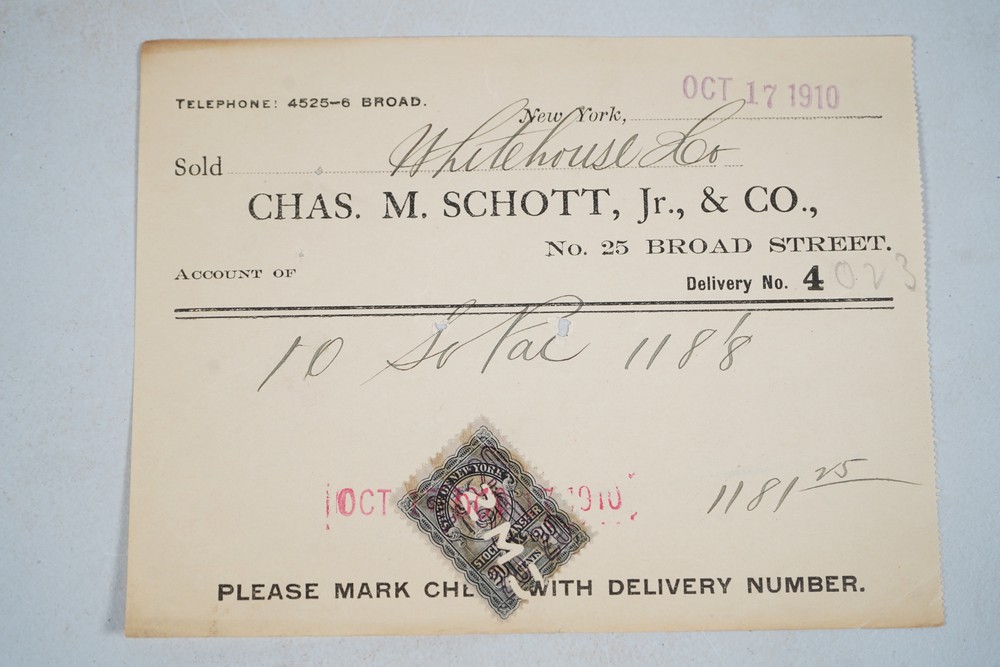 TELEPHONE: 4525-6 BROAD.
OCT 17 1910
New York,
Sold Whitehouse & Co
CHAS. M. SCHOTT, Jr., & CO.,
No. 25 BROAD STREET.
ACCOUNT OF
Delivery No. 4023
10 So Pac 118 1/8
OCT 1910
STATE OF NEW YORK
STOCK TRANSFER
CENTS
1181 25
PLEASE MARK WITH DELIVERY NUMBER.